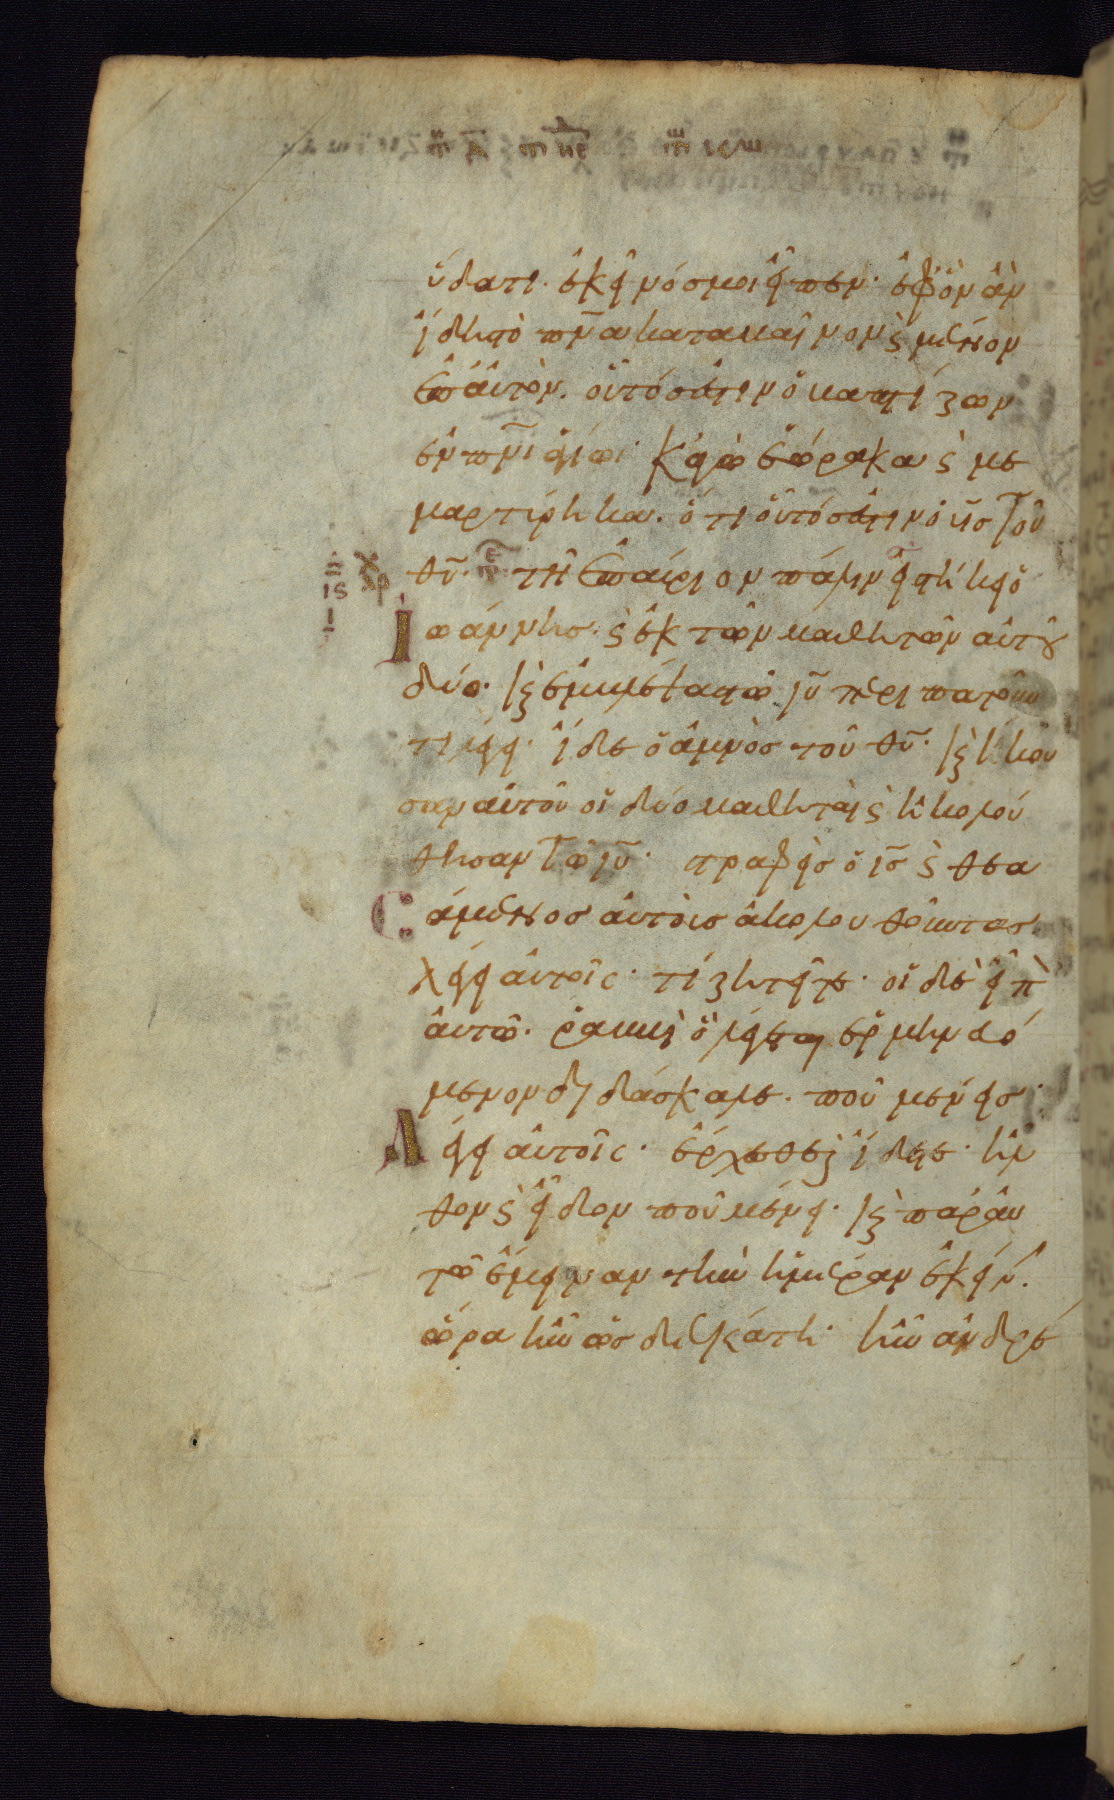 ὕδατι· ἐκεῖνός μοι εἶπεν· ἐφ' ὃν ἂν
ἴδῃς τὸ πν̅α καταβαῖνον ϗ μένον
ἐπ' αὐτὸν. οὗτός ἐστιν ὁ βαπτίζων
ἐν πν̅ι ἁγίωι· κἀγὼ ἑώρακα ϗ με
μαρτύρηκα. ὅτι οὗτός ἐστιν ὁ υς̅ τοῦ
θυ̅· τῆ ἐπαύριον πάλιν εἱστήκει ὁ
Ἰωάννης· ϗ ἐκ τῶν μαθητῶν αὐτοῦ
δύο· ϗ ἐμβλέψας τῶ ιυ̅ περιπατοῦν
τι λέγει· ἴδε ὁ ἀμνὸς τοῦ θυ̅· ϗ ἤκου
σαν αὐτοῦ οἱ δύο μαθηταὶ ϗ ἠκολού
θησαν τῶ ιυ̅· στραφεὶς ὁ ις̅ ϗ θεα
σάμενος αὐτοὺς ἀκολουθοῦντας
λέγει αὐτοῖς· τί ζητεῖτε· οἱ δὲ εἶπον
αὐτῶ. ῥαββὶ ὃ λέγεται ἑρμηνευό
μενον διδάσκαλε. ποῦ μένεις·
Λέγει αὐτοῖς· ἔρχεσθε ϗ ἴδετε· ἦλ
θον ϗ εἶδον ποῦ μένει· ϗ παρ' αὐ
τῶ ἔμειναν τὴν ἡμέραν ἐκείν.
ὥρα ἦν ὡς δεκάτη· ἦν ἀνδρέ